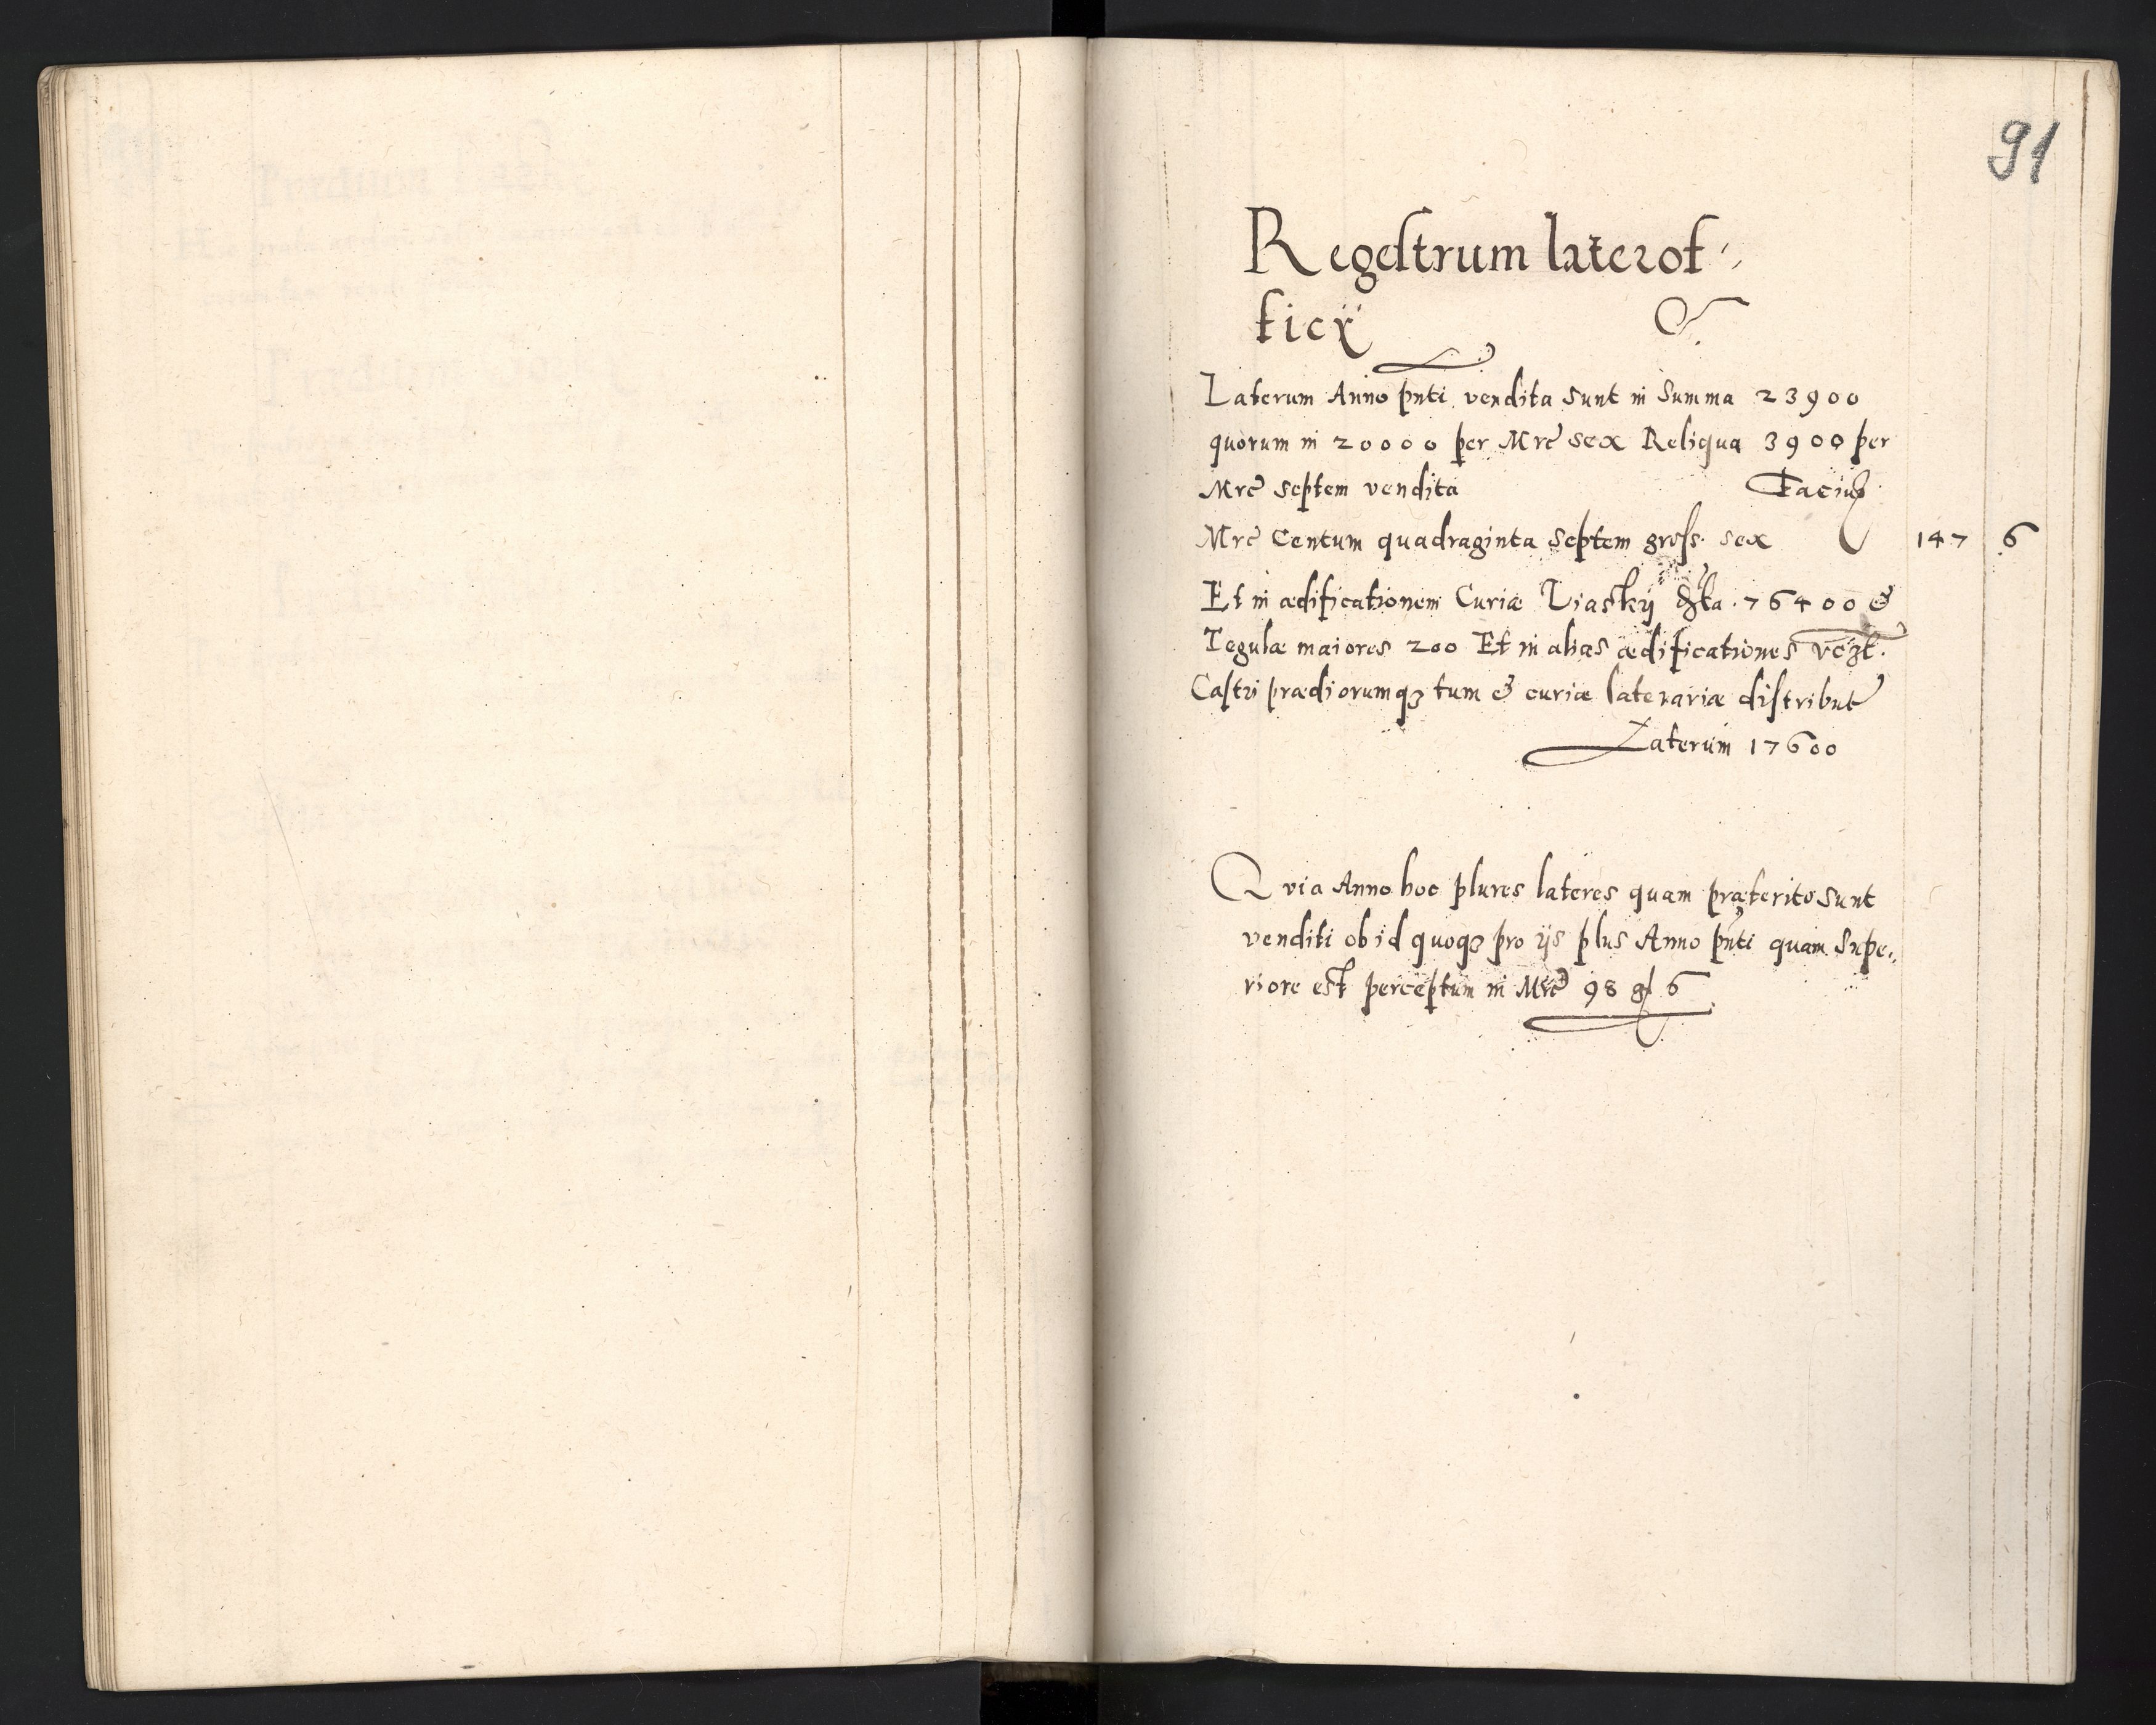 91
Regestrum laterof-
ficÿ
Laterum Anno pnti vendita sunt in Summa 23900
quorum in 20000 per Mrc sex Reliqua 3900 per
Mrc septem vendita Faciu
Mrc Centum quadraginta septem gross. sex 147 6
Et in ædificationem Curiæ Liaskij 76400 &
Tegulæ maiores 200 Et in alias ædificationes
Castri prædiorumqȝ tum & curiæ laterariæ distribut
Laterum 17600
Qvia Anno hoc plures lateres quam præterito sunt
venditi ob id quoqȝ pro ijs plus Anno pnti quam Supe-
riore est perceptum in Mrc 98 gr 6